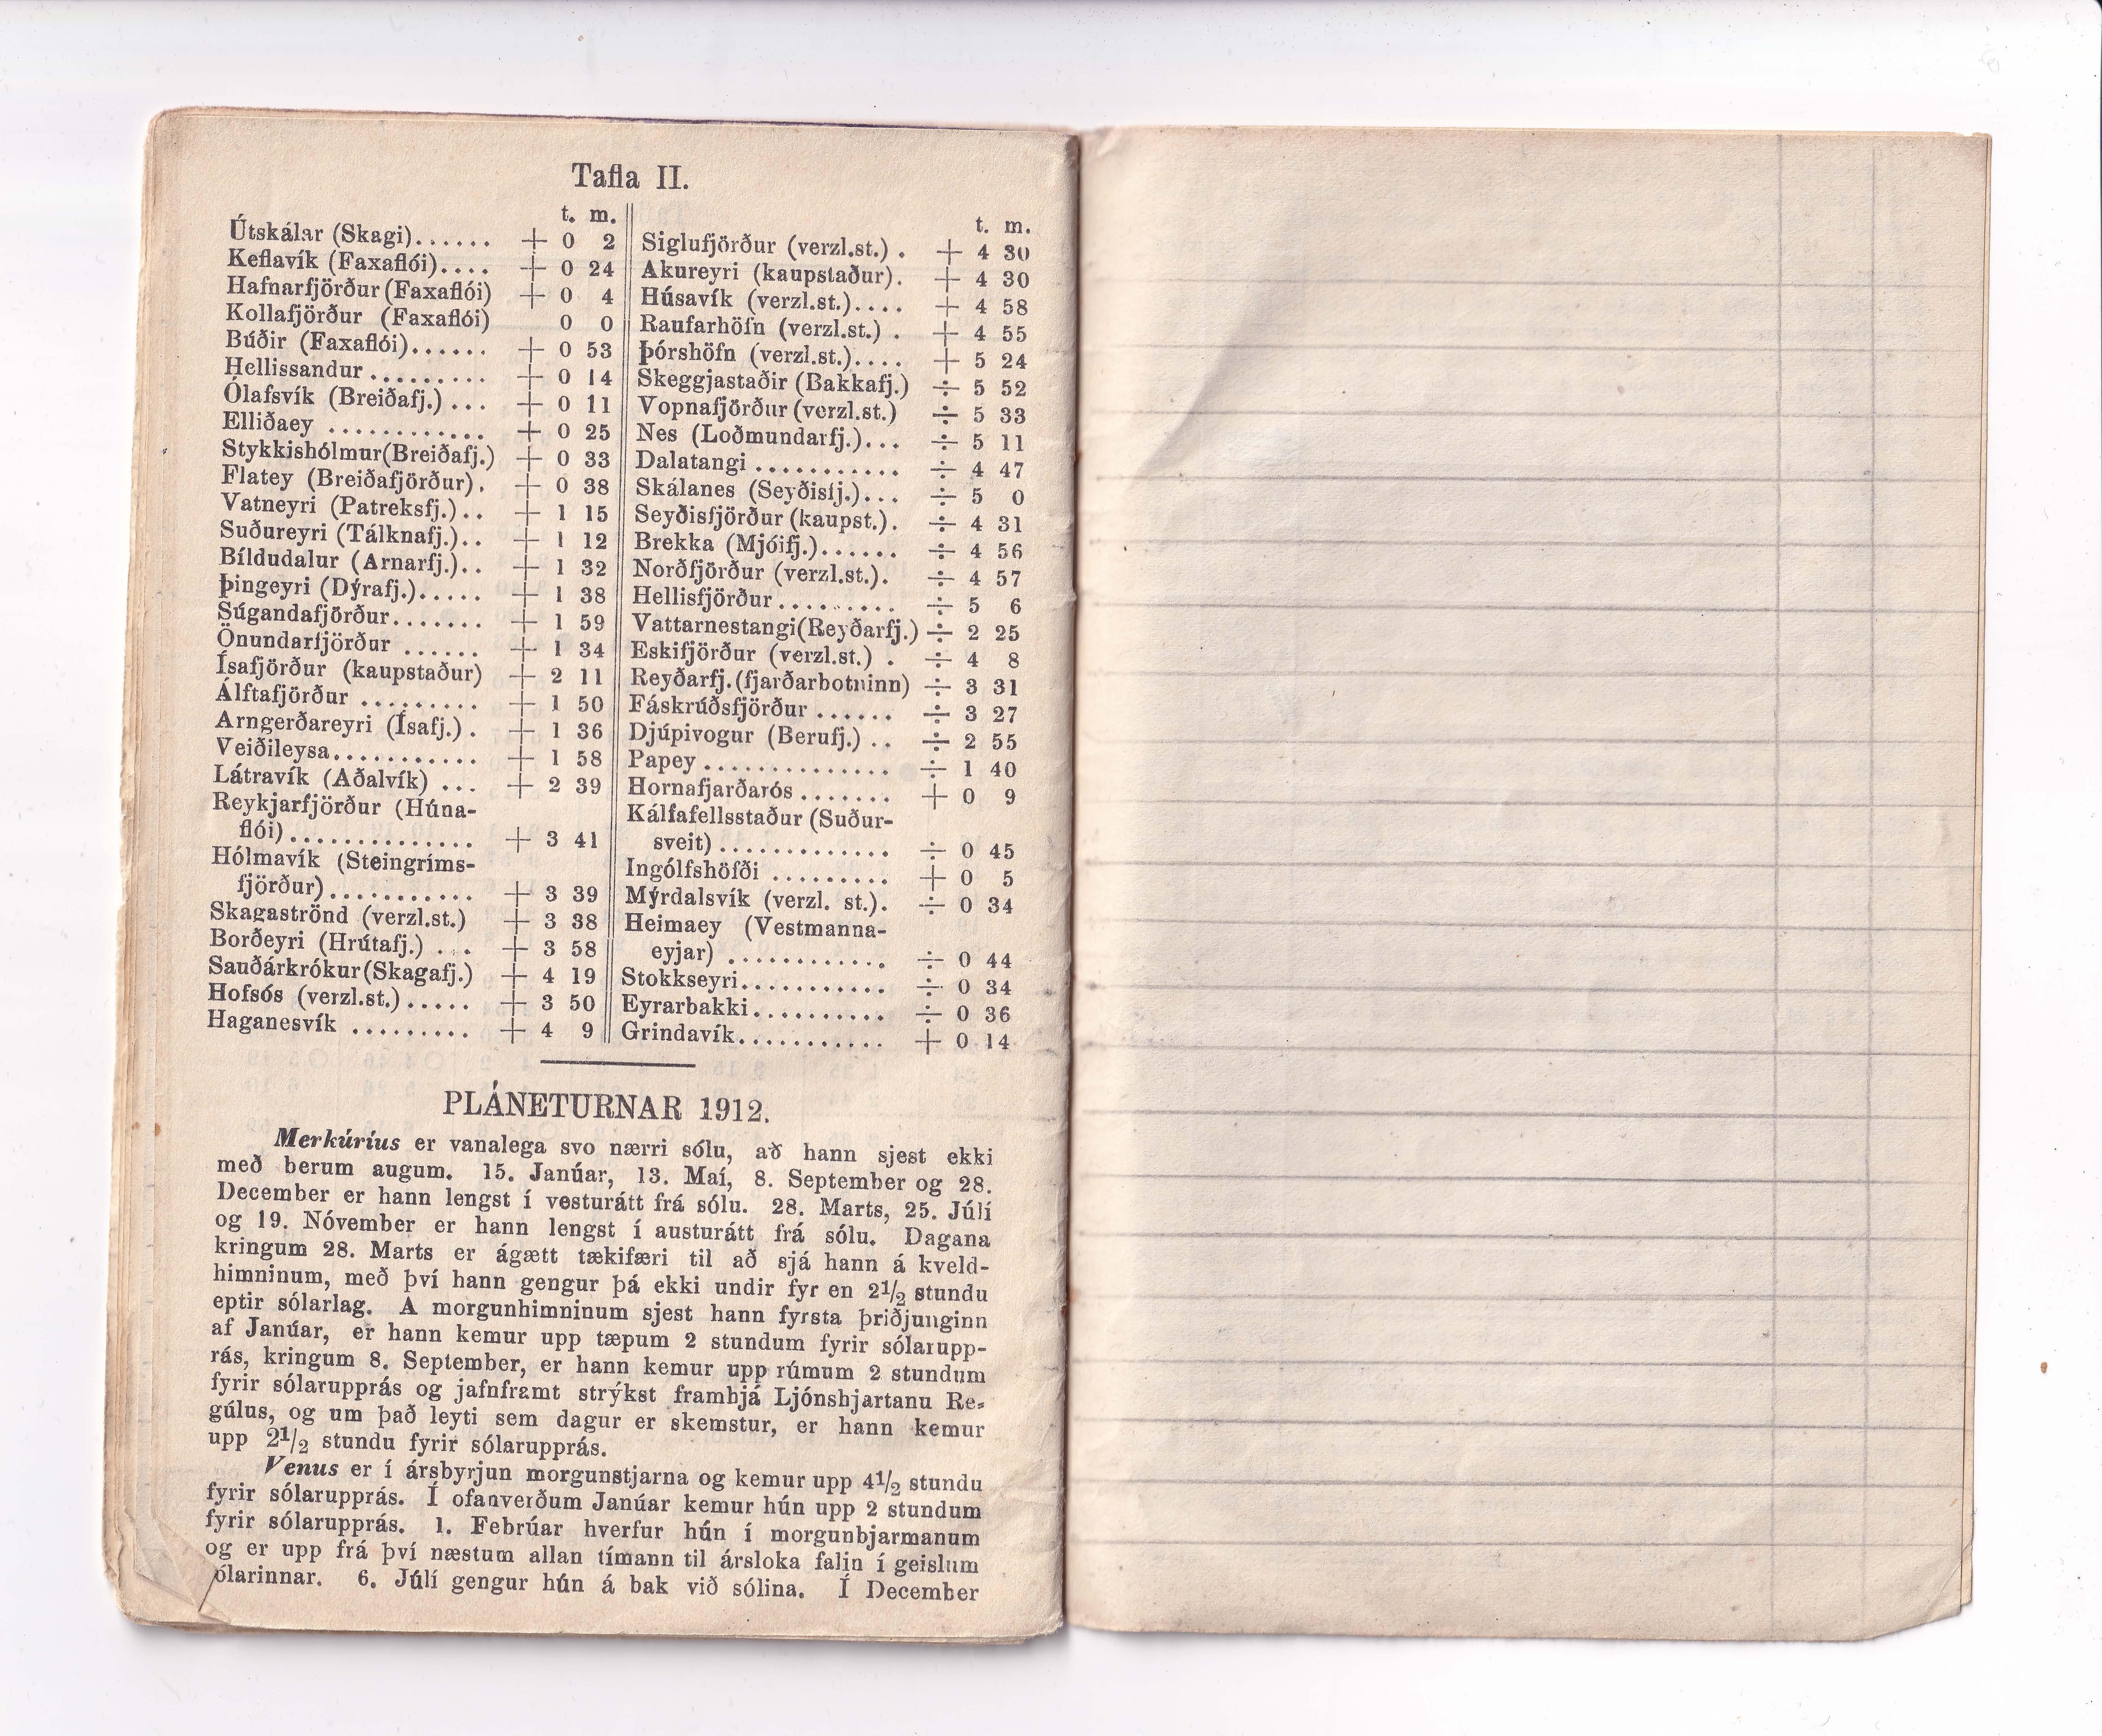 Tafla II.
t. m.
Útskálar (Skagi)...... + 0 2
Keflavík (Faxaflói).... + 0 24
Hafnarfjörður (Faxaflói) + 0 4
Kollafjörður (Faxaflói) 0 0
Búðir (Faxaflói)...... + 0 53
Hellissandur ......... + 0 14
Ólafsvík (Breiðafj.) ... + 0 11
Elliðaey ............ + 0 25
Stykkishólmur(Breiðafj.) + 0 33
Flatey (Breiðafjörður). + 0 38
Vatneyri (Patreksfj.).. + 1 15
Suðureyri (Tálknafj.).. + 1 12
Bíldudalur (Arnarfj.).. + 1 32
Þingeyri (Dýrafj.)..... + 1 38
Súgandafjörður....... + 1 59
Önundarfjörður ...... + 1 34
Ísafjörður (kaupstaður) + 2 11
Álftafjörður ......... + 1 50
Arngerðareyri (Ísafj.) . + 1 36
Veiðileysa........... + 1 58
Látravík (Aðalvík) ... + 2 39
Reykjarfjörður (Húna-
flói).............. + 3 41
Hólmavík (Steingríms-
fjörður)........... + 3 39
Skagaströnd (verzl.st.) + 3 38
Borðeyri (Hrútafj.) ... + 3 58
Sauðárkrókur(Skagafj.) + 4 19
Hofsós (verzl.st.)..... + 3 50
Haganesvík ......... + 4 9
t. m.
Siglufjörður (verzl.st.) . + 4 30
Akureyri (kaupstaður). + 4 30
Húsavík (verzl.st.).... + 4 58
Raufarhöfn (verzl.st.) . + 4 55
Þórshöfn (verzl.st.).... + 5 24
Skeggjastaðir (Bakkafj.) ÷ 5 52
Vopnafjörður (verzl.st.) ÷ 5 33
Nes (Loðmundarfj.)... ÷ 5 11
Dalatangi ........... ÷ 4 47
Skálanes (Seyðisfj.)... ÷ 5 0
Seyðisfjörður (kaupst.). ÷ 4 31
Brekka (Mjóifj.)...... ÷ 4 56
Norðfjörður (verzl.st.). ÷ 4 57
Hellisfjörður......... ÷ 5 6
Vattarnestangi(Reyðarfj.) ÷ 2 25
Eskifjörður (verzl.st.) . ÷ 4 8
Reyðarfj.(fjarðarbotninn) ÷ 3 31
Fáskrúðsfjörður ...... ÷ 3 27
Djúpivogur (Berufj.) .. ÷ 2 55
Papey .............. ÷ 1 40
Hornafjarðarós ....... + 0 9
Kálfafellsstaður (Suður-
sveit) ............. ÷ 0 45
Ingólfshöfði ......... + 0 5
Mýrdalsvík (verzl. st.). ÷ 0 34
Heimaey (Vestmanna-
eyjar) ............ ÷ 0 44
Stokkseyri........... ÷ 0 34
Eyrarbakki.......... ÷ 0 36
Grindavík........... + 0 14
PLÁNETURNAR 1912.
Merkúríus er vanalega svo nærri sólu, að hann sjest ekki
með berum augum. 15. Janúar, 13. Maí, 8. September og 28.
December er hann lengst í vesturátt frá sólu. 28. Marts, 25. Júlí
og 19. Nóvember er hann lengst í austurátt frá sólu. Dagana
kringum 28. Marts er ágætt tækifæri til að sjá hann á kveld-
himninum, með því hann gengur þá ekki undir fyr en 2½ stundu
eptir sólarlag. A morgunhimninum sjest hann fyrsta þriðjunginn
af Janúar, er hann kemur upp tæpum 2 stundum fyrir sólarupp-
rás, kringum 8. September, er hann kemur upp rúmum 2 stundum
fyrir sólarupprás og jafnframt strýkst framhjá Ljónshjartanu Re-
gúlus, og um það leyti sem dagur er skemstur, er hann kemur
upp 2½ stundu fyrir sólarupprás.
Venus er í ársbyrjun morgunstjarna og kemur upp 4½ stundu
fyrir sólarupprás. Í ofanverðum Janúar kemur hún upp 2 stundum
fyrir sólarupprás. 1. Febrúar hverfur hún í morgunbjarmanum
og er upp frá því næstum allan tímann til ársloka falin í geislum
ólarinnar. 6. Júlí gengur hún á bak við sólina. Í December